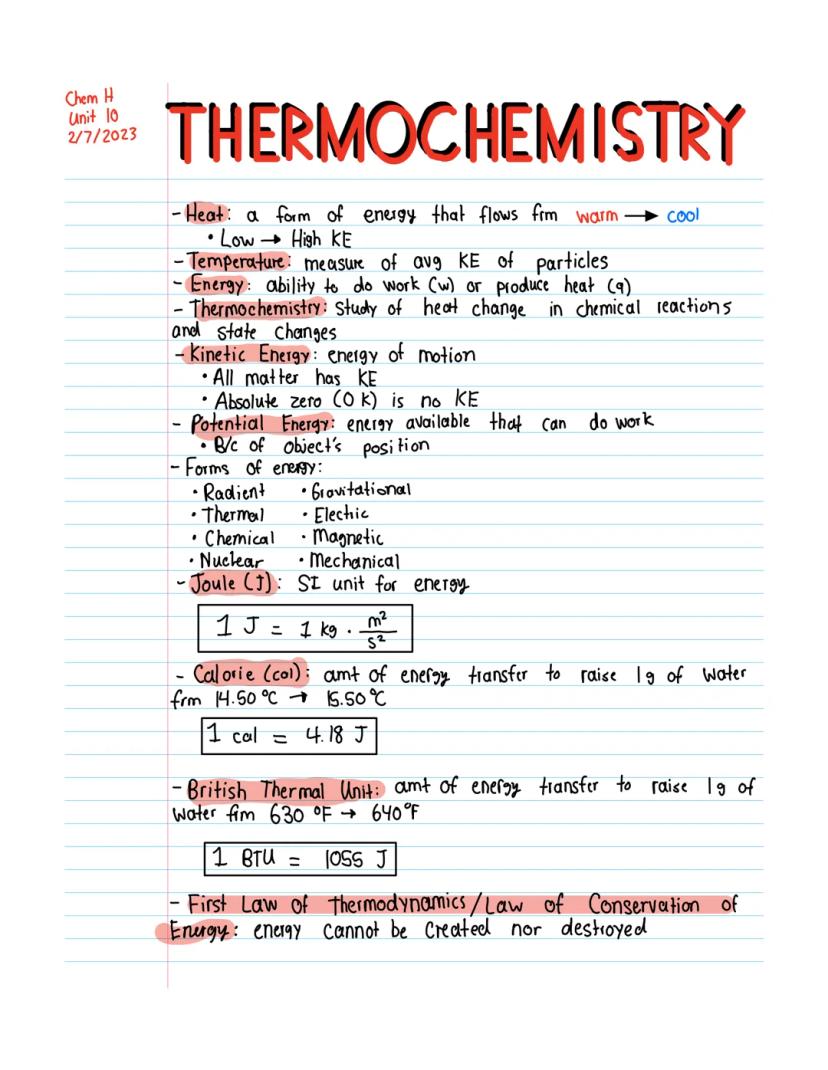 Chem H
Unit 10
2/7/2023
THERMOCHEMISTRY
- Heat: a form of energy that flows frm warm → cool
• Low → High KE
- Temperature: measure of avg KE of particles
- Energy: ability to do work (w) or produce heat (q)
- Thermochemistry: Study of heat change in chemical reactions
and state changes
- Kinetic Energy: energy of motion
• All matter has KE
• Absolute zero (0 K) is no KE
- Potential Energy: energy available that can do work
• B/c of object's position
- Forms of energy:
• Radient • Gravitational
• Thermal • Electric
• Chemical • Magnetic
• Nuclear • Mechanical
- Joule (J): SI unit for energy
1 J = 1 kg · m²/s²
- Calorie (cal): amt of energy transfer to raise 1g of water
frm 14.50 °C → 15.50 °C
1 cal = 4.18 J
- British Thermal Unit: amt of energy transfer to raise 1g of
water frm 630 °F → 640°F
1 BTU = 1055 J
- First Law of Thermodynamics/Law of Conservation of
Energy: energy cannot be created nor destroyed